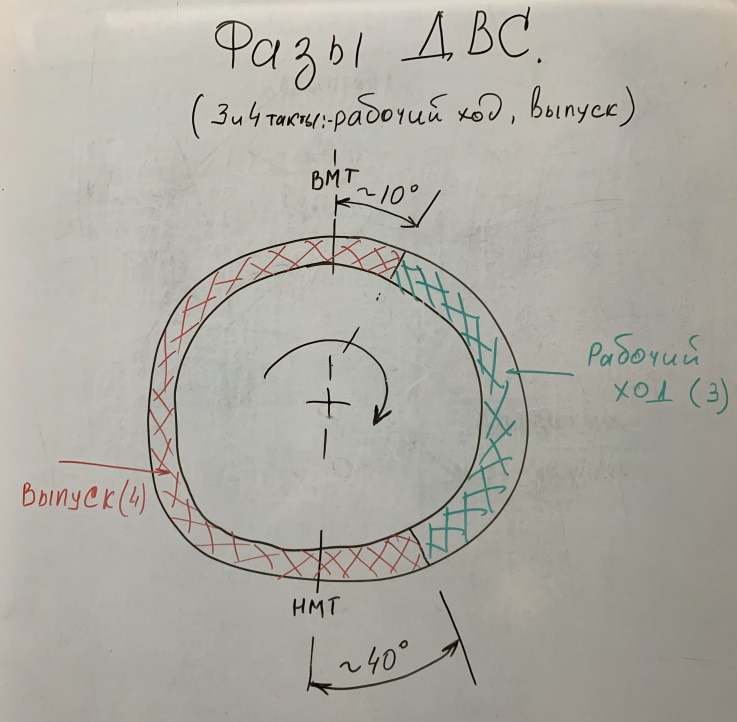 Фазы ДВС.
(3и4 такты:-рабочий ход, выпуск)
ВМТ
~10°
Рабочий
ход (3)
Выпуск(4)
НМТ
~40°